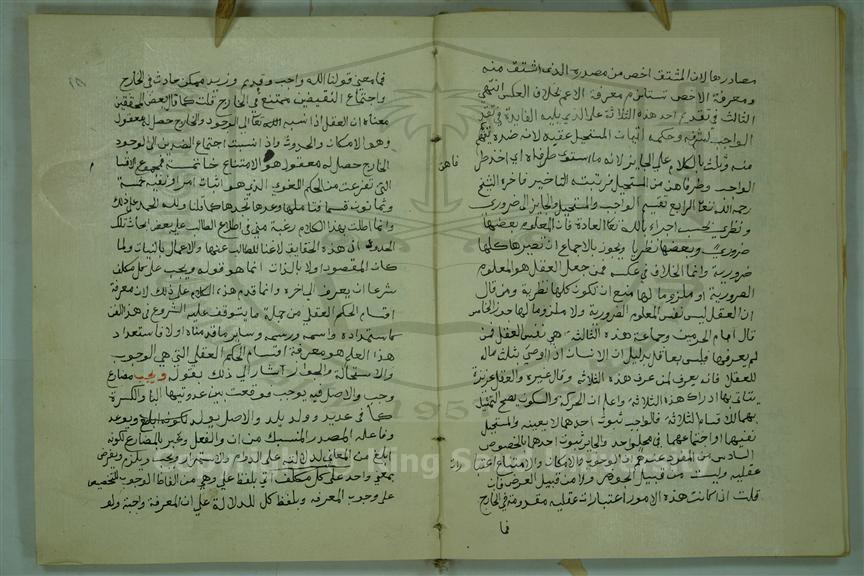 مصادرها لان المشتق اخص من مصدره الذى اشتق منه
ومعرفة الاخص تستلزم معرفة الاعم بخلاف العكس انتهى
الثالث وتقدم احد هذه الثلاثة على الذى يليه الفايدة فى تقديم
الواجب لشرفه وحكمه اثبات المستحيل عقبه لانه ضده
منه وثلث بالكلام على الجايز لانه
الواجب وطرفا من المستحيل فرتبته التاخير فاخره الشيخ
رحمه الله تعالى الرابع تقسيم الواجب والمستحيل والجايز الى ضرورى
ونظرى بحسب اجراء الله تعالى العادة فان المعلوم بعضها
ضرورى وبعضها نظريا ويجوز بالاجماع ان تصير كلها
ضرورية وانما الخلاف فى عكسه فمن جعل العقل هو المعلوم
الضرورية او ملزوما لها منع ان تكون كلها نظرية ومن قال
ان العقل ليس نفس المعلوم الضرورية ولا ملزوما لها جوز الخامس
قال امام الحرمين وجماعة هذه الثلاثة هى نفس العقل فمن
لم يعرفها فليس بعاقل بدليل ان الانسان ان اوصى بثلث ماله
للعقل فانه يعرف لمن عرف هذه الثلاثة وقال غيره والعقل غريزة
يتاتى بها ادراك هذه الثلاثة واعلم ان الحركة والسكون يصح التمثيل
بهما للاقسام الثلاثة فالواجب ثبوت احدهما لا بعينه والمستحيل
نفيهما او اجتماعهما فى محل واحد والجايز ثبوت احدهما بالخصوص
السادس من المقرر عندهم ان الوجوب والامكان والامتناع اعتبارات
عقلية وليست من قبيل الجوهر ولا من قبيل العرض فان
قلت اذا كانت هذه الامور اعتبارات عقليه معدومة فى الخارج
فما
فما معنى قولنا الله واجب وقديم وزيد ممكن حادث فى الخارج
واجتماع النقيضين ممتنع فى الخارج قلت كما قال بعض المحققين
معناه ان العقل اذا نسبه الله تعالى الى الوجود والخارج حصل له معقول
وهو الامكان والحدوث واذا نسبت اجتماع الضدين الى الوجود
الخارج حصل له معقول هو الامتناع خاتمة فمجموع الاقسام
التى تفرعت من الحكم اللغوى الذى هو اثبات امر او نفيه خمسة
وثمانون قسما فتاملها وعدها تجدها كما قلنا ولله الحمد على ذلك
وانما اطلت بهذا الكلام رغبة منى فى اطلاع الطالب على بعض احاث تلك
الحدود اذ هذه الحقايق لا غنا للطالب عنها والاعمال بالنيات ولما
كان المقصود اولا بالذات انما هو قوله ويجب على كل مكلف
شرعا ان يعرف الى اخره وانما قدم هذا الكلام على ذلك لان معرفة
اقسام الحكم العقلى من جملة ما يتوقف عليه الشروع فى هذا الفن
كاستمداده واسمه ورسمه وساير ما قدمناه اولا فاستعداد
هذا العلم هو معرفة اقسام الحكم العقلى التى هى الوجوب
والاستحالة والجواز اشار الى ذلك بقوله ويجب مضارع
وجب والاصل فيه يوجب فوقعت بين عدوتيها اليا والكسرة
كما فى عديد وولد يلد والاصل يولد ويوعد
وفاعله المصدر المنسبك من ان والفعل وعبر بالمضارع لكونه
ابلغ من الماضى لدلالته على الدوام والاستمرار ويجب ويلزم ويفرض
بمعنى واحد على كل مكلف اتى بلفظ على وهى من الفاظ الوجوب
على وجوب المعرفه وبلفظ كل للدلالة على ان المعرفة واجبة ولو
Copyright © King Saud University
1957